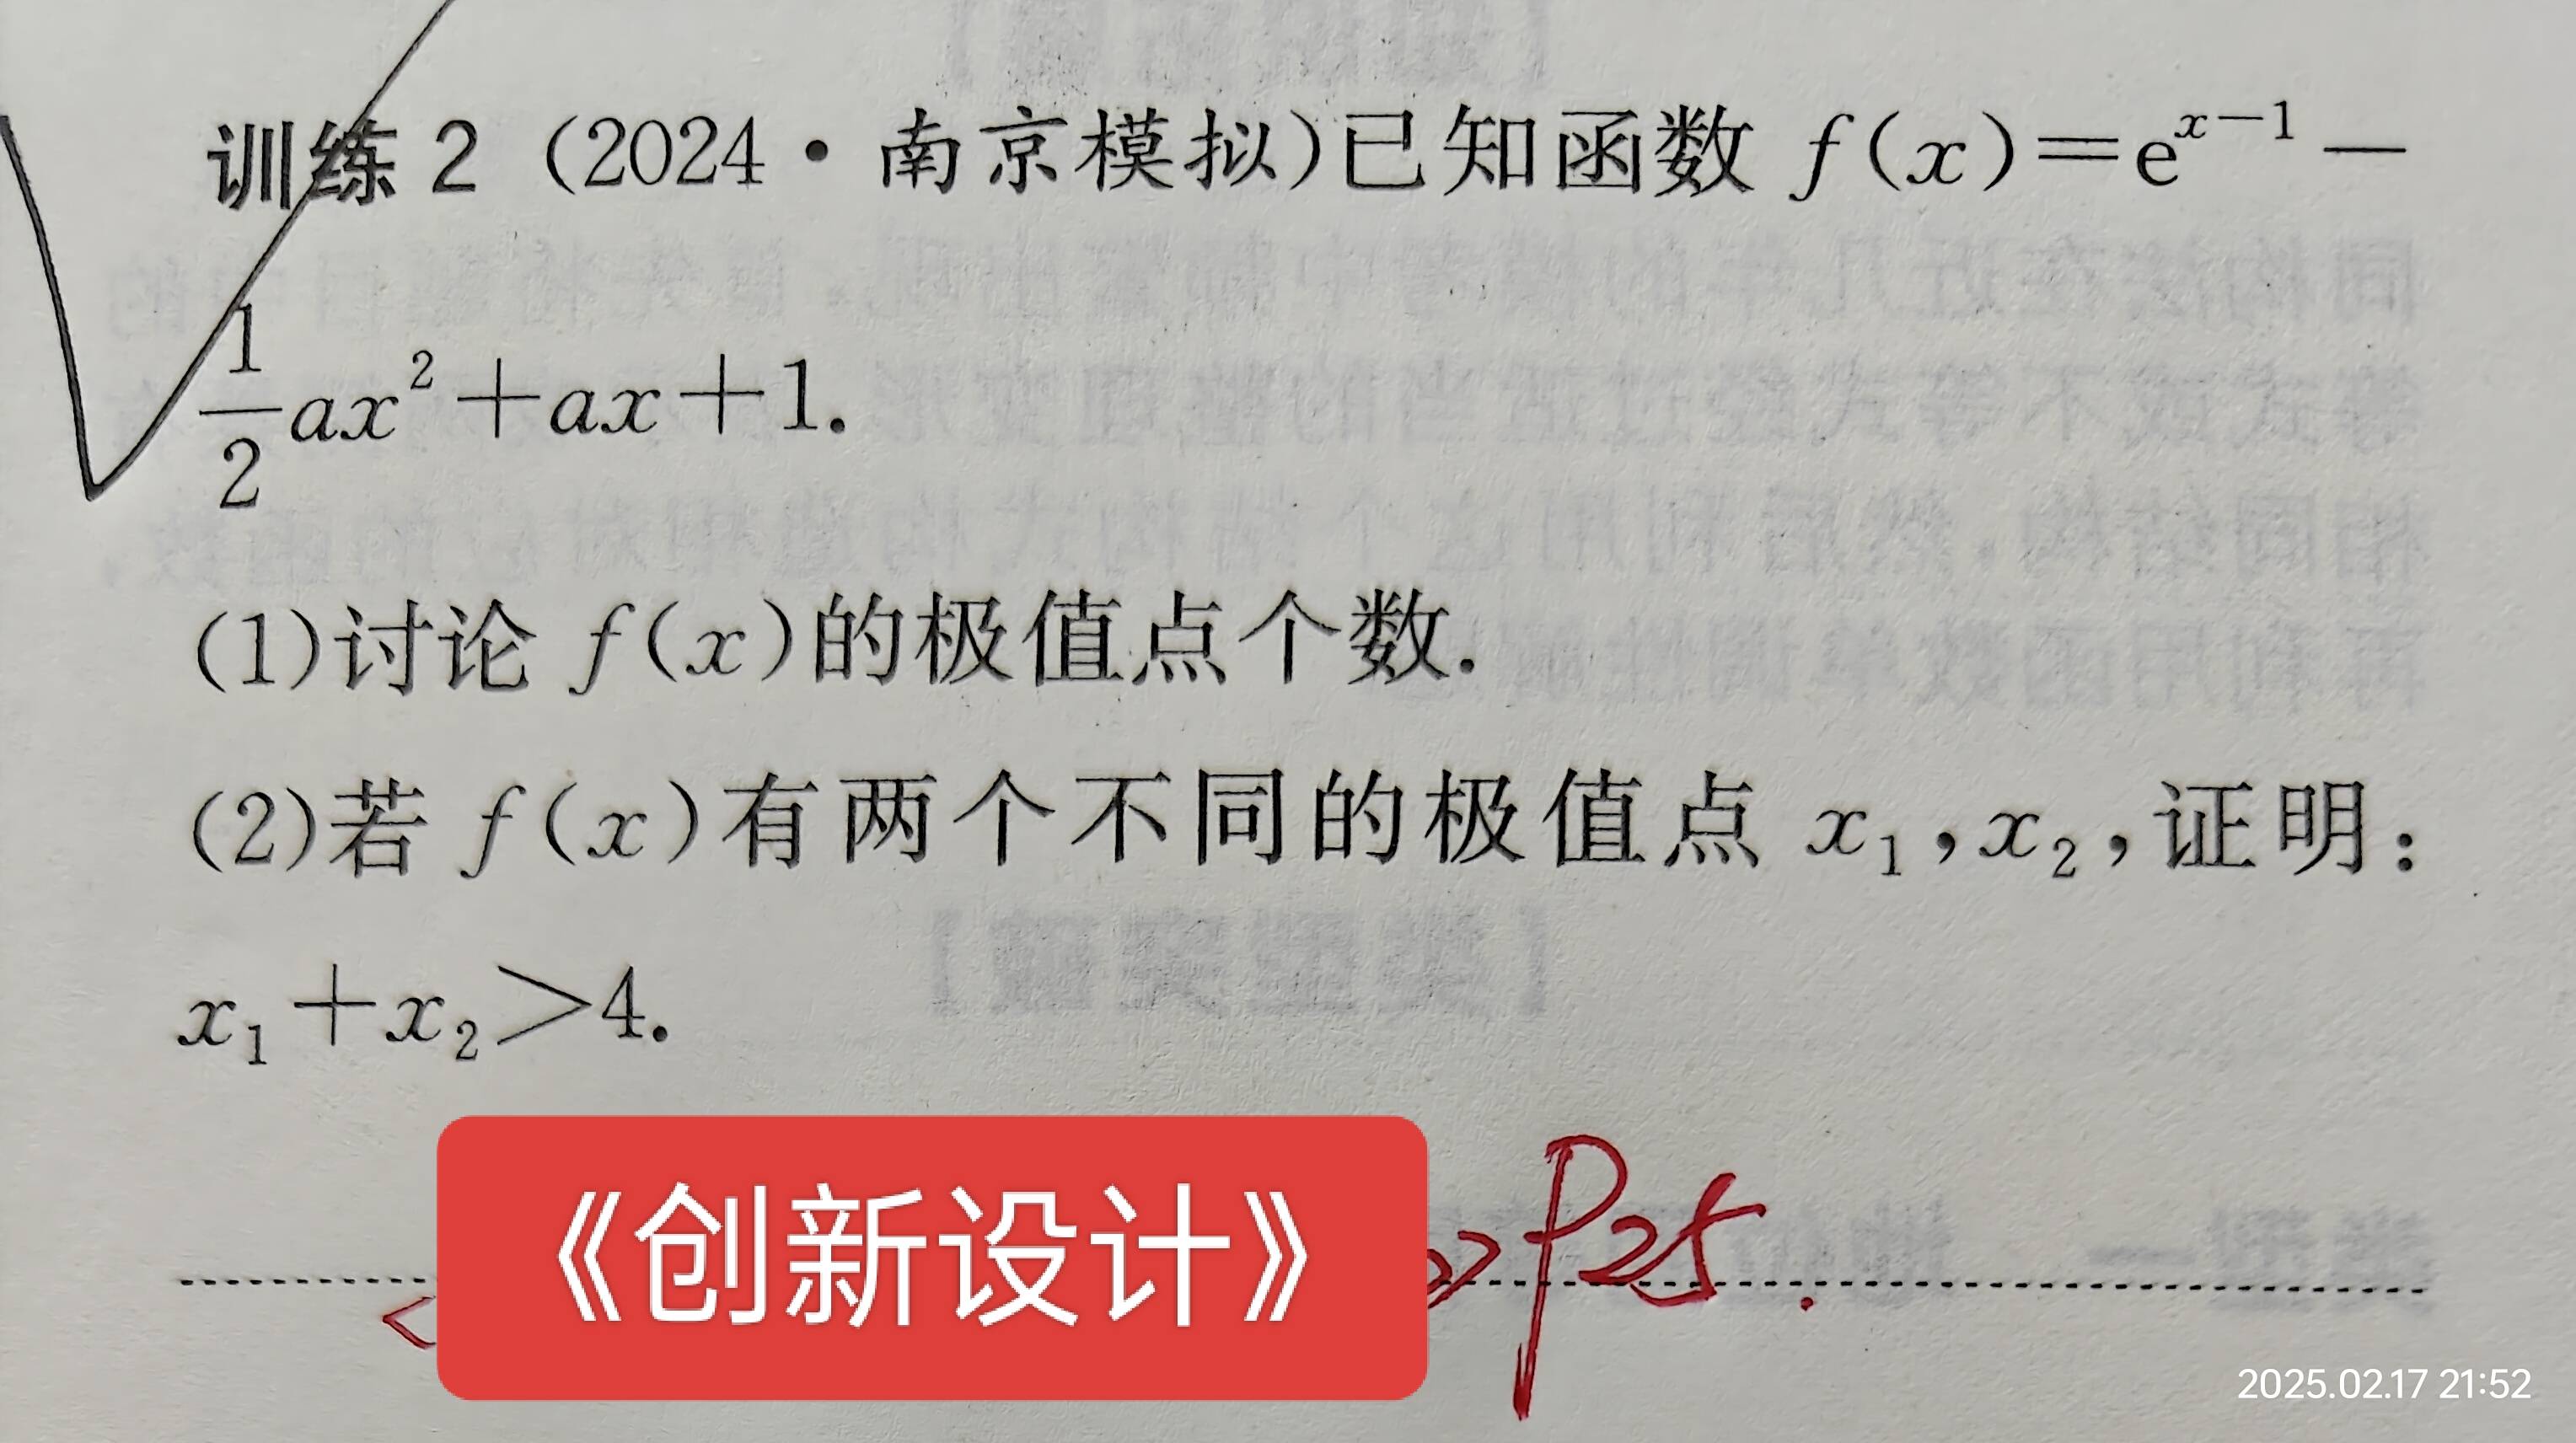 训练 2 (2024·南京模拟)已知函数 f(x)=e^{x-1}-
\frac{1}{2}ax²+ax+1.
(1)讨论 f(x)的极值点个数.
(2)若 f(x)有两个不同的极值点 x₁,x₂,证明:
x₁+x₂>4.
《创新设计》
P25.
2025.02.17 21:52